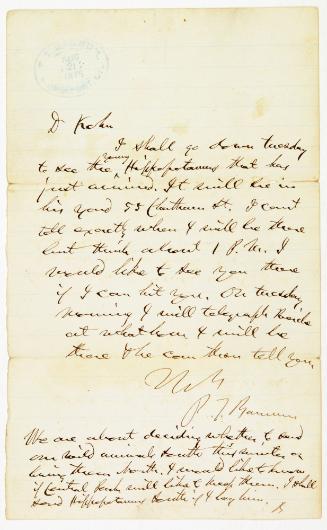 P. T. BARNUM
D Kohn
I shall go down tuesday
to see the young Hippopotamus that has
just arrived. It will be in
his yard 55 Chatham St. I can't
tell exactly when I will be there
but think about 1 P.M. I
would like to see you there
if I can hit you. On tuesday
morning I will telegraph Reiche
at what hour I will be
there & he can then tell you
P. T. Barnum
We are about deciding whether to send
our wild animals South this winter or
bring them North. I would like to know
if Central Park will like to keep them. I shall
send Hippopotamus South if I buy him.
B